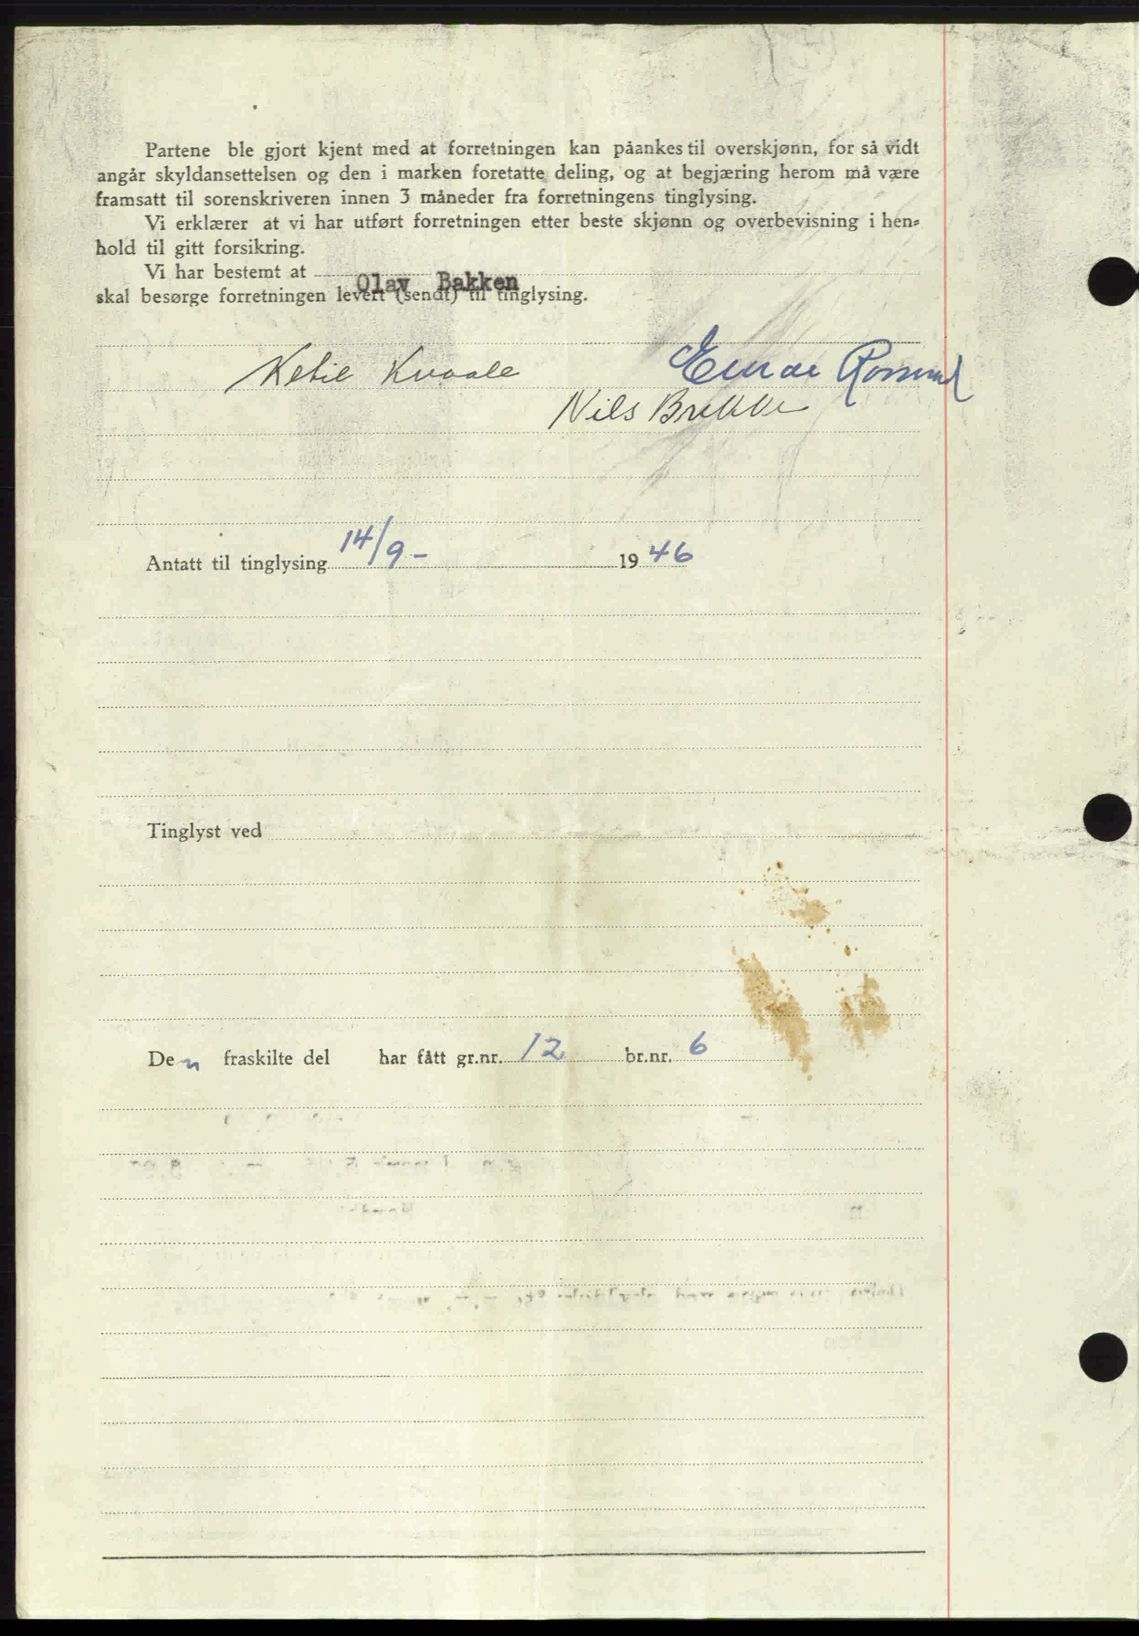 Partene ble gjort kjent med at forretningen kan påankes til overskjønn, for så vidt
angår skyldansettelsen og den i marken foretatte deling, og at begjæring herom må være
framsatt til sorenskriveren innen 3 måneder fra forretningens tinglysing.
Vi erklærer at vi har utført forretningen etter beste skjønn og overbevisning i hen-
hold til gitt forsikring.
Vi har bestemt at
Olav Bakken
skal besørge forretningen levert (sendt) til tinglysing.
Ketil Kvaale Einar
Nils Brekke
Antatt til tinglysing 14/9- 1946
Tinglyst ved
Den fraskilte del har fått gr.nr. 12 br.nr. 6